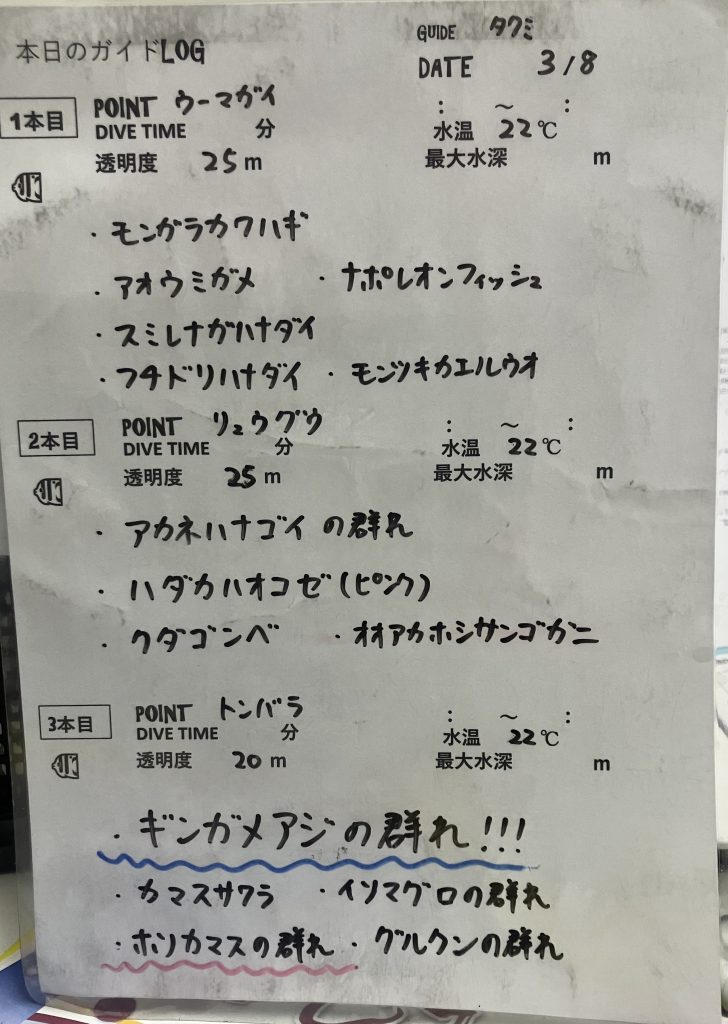 本日のガイドLOG GUIDE タクミ
DATE 3/8
1本目 POINT ウーマガイ : ～ :
DIVE TIME 分 水温 22℃
透明度 25m 最大水深 m
・モンガラカワハギ
・アオウミガメ ・ナポレオンフィッシュ
・スミレナガハナダイ
・フチドリハナダイ ・モンツキカエルウオ
2本目 POINT リュウグウ : ～ :
DIVE TIME 分 水温 22℃
透明度 25m 最大水深 m
・アカネハナゴイの群れ
・ハダカハオコゼ(ピンク)
・クダゴンベ ・オオアカホシサンゴガニ
3本目 POINT トンバラ : ～ :
DIVE TIME 分 水温 22℃
透明度 20m 最大水深 m
・ギンガメアジの群れ!!!
・カマスサワラ ・イソマグロの群れ
・ホソカマスの群れ ・グルクンの群れ